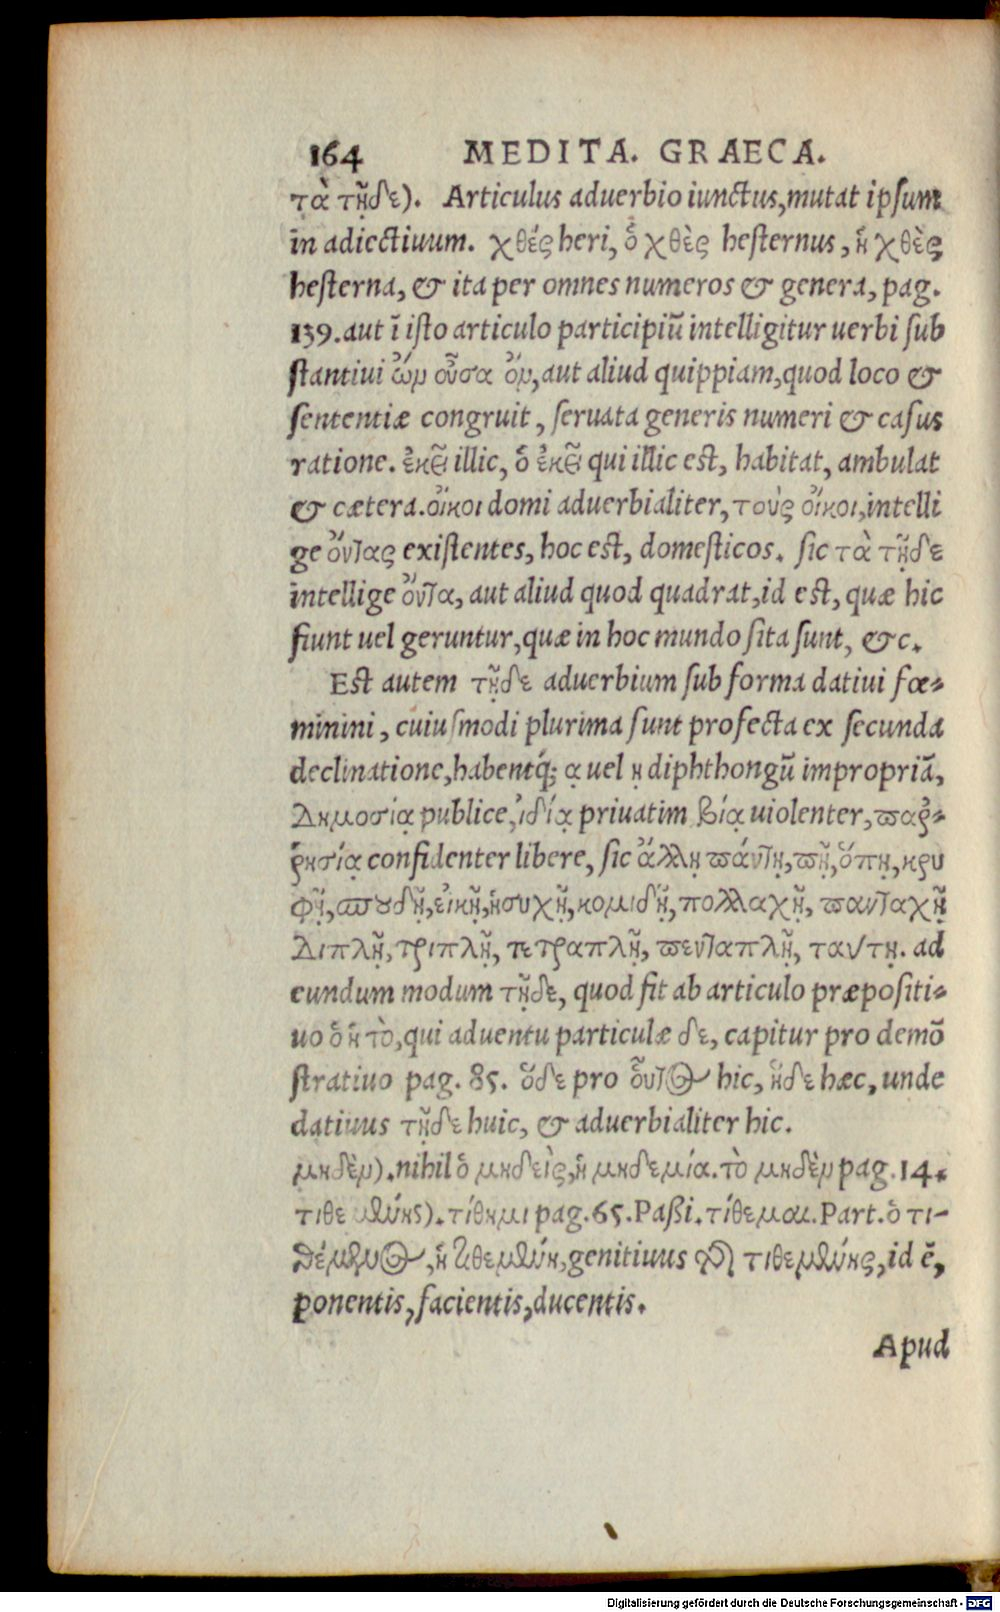 164 MEDITA. GRAECA.
τὰ τῇδε). Articulus aduerbio iunctus, mutat ipsum
in adiectiuum. χθές heri, ὁ χθὲς hesternus, ἡ χθὲς
hesterna, & ita per omnes numeros & genera, pag.
139. aut ī isto articulo participiū intelligitur uerbi sub
stantiui ὢν οὖσα ὂν, aut aliud quippiam, quod loco &
sententiæ congruit, seruata generis numeri & casus
ratione. ἐκεῖ illic, ὁ ἐκεῖ qui illic est, habitat, ambulat
& cætera. οἴκοι domi aduerbialiter, τοὺς οἴκοι, intelli
ge ὄντας existentes, hoc est, domesticos. sic τὰ τῇδε
intellige ὄντα, aut aliud quod quadrat, id est, quæ hic
fiunt uel geruntur, quæ in hoc mundo sita sunt, &c.
Est autem τῇδε aduerbium sub forma datiui fœ-
minini, cuiusmodi plurima sunt profecta ex secunda
declinatione, habentq́; ᾳ uel ῃ diphthongū impropriā,
Δημοσίᾳ publice, ἰδίᾳ priuatim βίᾳ uiolenter, παῤ-
ῥησίᾳ confidenter libere, sic ἄλλῃ πάντῃ, πῇ, ὅπῃ, κρυ
φῇ, σπουδῇ, εἰκῇ, ἡσυχῇ, κομιδῇ, πολλαχῇ, πανταχῇ
Διπλῇ, τριπλῇ, τετραπλῇ, πενταπλῇ, ταύτῃ. ad
eundum modum τῇδε, quod fit ab articulo præpositi-
uo ὁ ἡ τὸ, qui aduentu particulæ δε, capitur pro demō
stratiuo pag. 85. ὅδε pro οὗτος hic, ἥδε hæc, unde
datiuus τῇδε huic, & aduerbialiter hic.
μηδὲν). nihil ὁ μηδεὶς, ἡ μηδεμία. τὸ μηδὲν pag. 14.
τιθεμένης). τίθημι pag. 65. Paßi. τίθεμαι. Part. ὁ τι-
θέμενος, ἡ τιθεμένη, genitiuus τῆς τιθεμένης, id ē,
ponentis, facientis, ducentis.
Apud
Digitalisierung gefördert durch die Deutsche Forschungsgemeinschaft - DFG